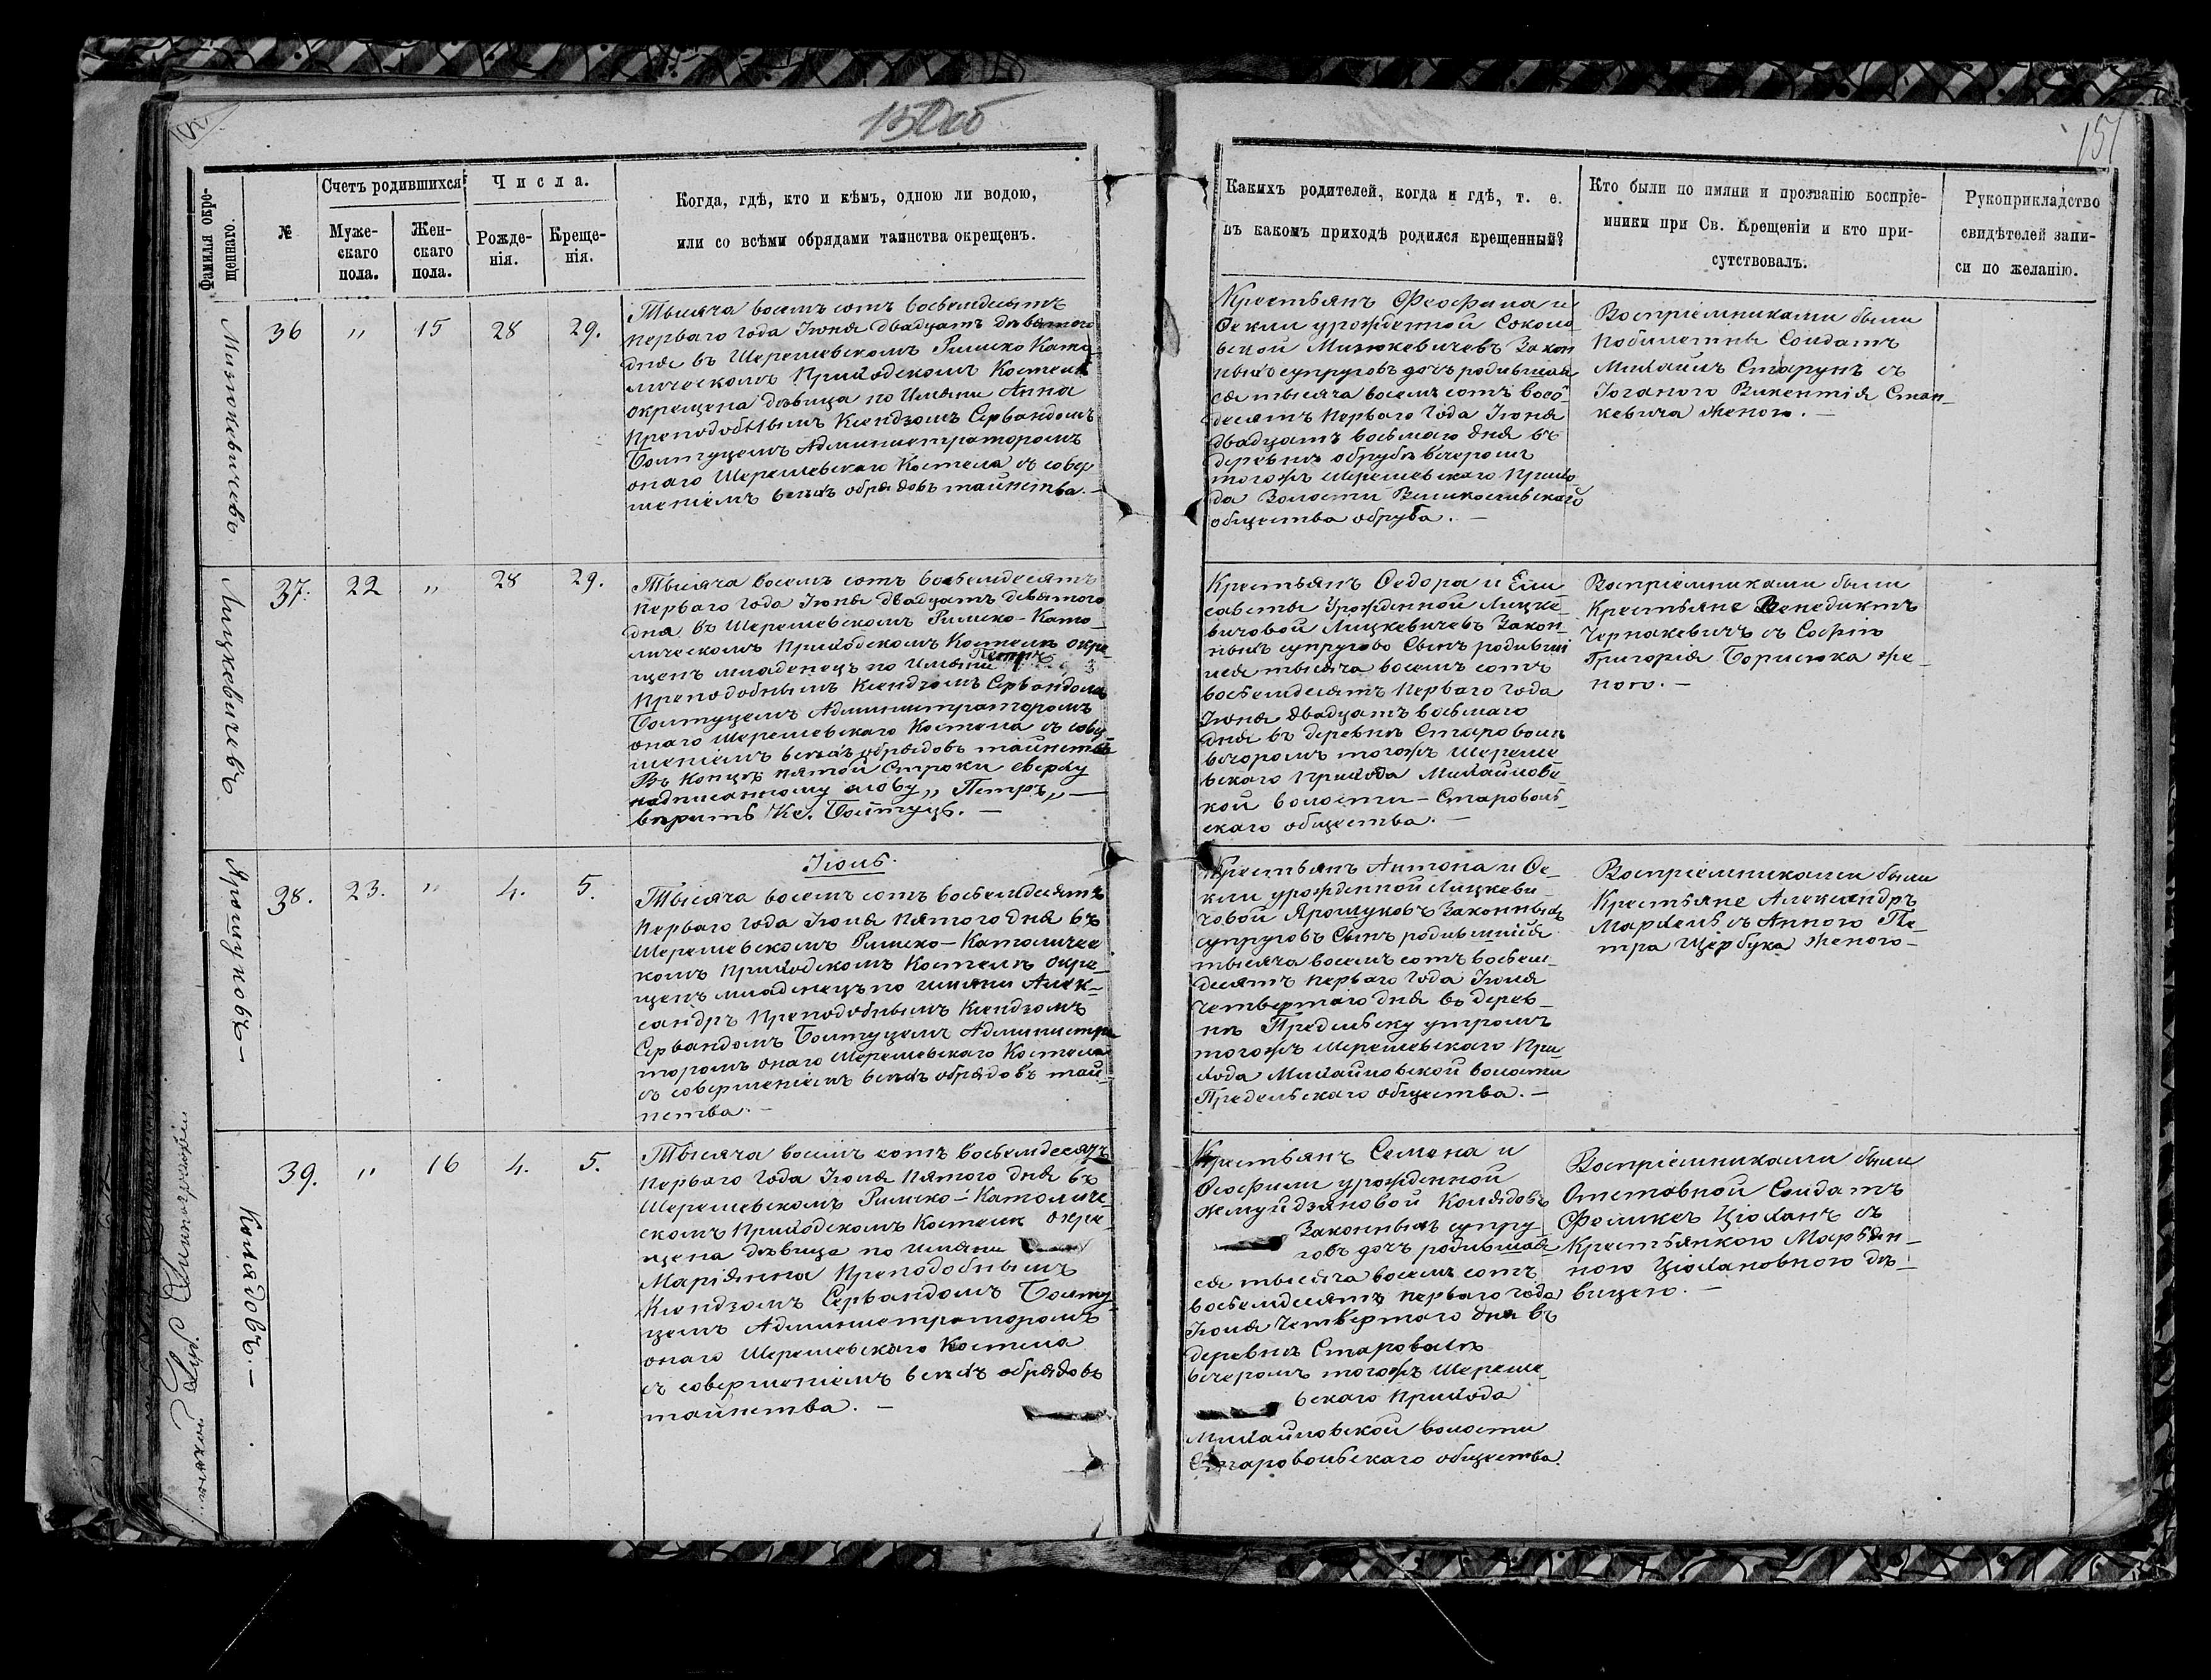 150об
151
Фамилія окре-
щеннаго.
№
Счетъ родившихся
Муже-
скаго
пола.
Жен-
скаго
пола.
Числа.
Рожде-
нія.
Креще-
нія.
Когда, гдѣ, кто и кѣмъ, одною ли водою,
или со всѣми обрядами таинства окрещенъ.
Какихъ родителей, когда и гдѣ, т. е.
въ какомъ приходѣ родился крещенный?
Кто были по имяни и прозванію воспріе-
мники при Св. Крещеніи и кто при-
сутствовалъ.
Рукоприкладство
свидѣтелей запи-
си по желанію.
Мизюкевичевъ
36 „ 15 28 29.
Тысяча восемъ сотъ восьемдесятъ
перваго года Іюня двадцатъ девятого
дня въ Шерешевскомъ Римско Като
лическомъ Приходскомъ Костелѣ
окрещена дѣвица по Имяни Анна
Преподобнымъ Ксендзомъ Сервандомъ
Болтуцемъ Администраторомъ
онаго Шерешевскаго Костела съ совер
шеніемъ всѣхъ обрядовъ таинства. —
Крестьянъ Феофила и
Феклы урожденной Соколо
вской Мизюкевичевъ Закон
ныхъ супруговъ дочь родившая
ся тысяча восемъ сотъ восе
десятъ перваго года Іюня
двадцатъ восьмаго дня въ
деревнѣ обрубѣ вечеромъ
тогожъ Шерешевскаго Прихо
да Волости Великосельскаго
общества обруба. —
Воспріемниками были
Солдатъ
Михаилъ Старунъ съ
Іоганою Викентія Стан-
кевича женою. —
Лицкевичевъ
37. 22 „ 28 29.
Тысяча восемъ сотъ восьемдесятъ
перваго года Іюня двадцатъ девятого
дня въ Шерешевскомъ Римско-Като-
лическомъ Приходскомъ Костелѣ окре-
щенъ младенецъ по Имяни Петръ
Преподобнымъ Ксендзомъ Сервандомъ
Болтуцемъ Администраторомъ
онаго Шерешевскаго Костела съ совер
шеніемъ всѣхъ обрядовъ таинства
Въ концѣ пятой строки сверху
надписанному слову „Петръ„ —
вѣрить Кс. Болтуць. —
Крестьянъ Федора и Ели
саветы Урожденной Лицке-
вичовой Лицкевичевъ Закон-
ныхъ супругово Сынъ родивши
йся тысяча восемъ сотъ
восьемдесятъ перваго года
Іюня двадцатъ восьмаго
дня въ деревнѣ Староволи
вечоромъ тогожъ Шереше
вскаго Прихода Михайловс-
кой волости — Старовольс-
скаго общества. —
Воспріемниками были
Крестьяне Венедиктъ
Чернакевичъ съ Софіею
Григорія Борисюка же-
ною. —
Ярошуковъ —
38. 23. „ 4. 5.
Іюль.
Тысяча восемъ сотъ восьемдесятъ
перваго года Іюля пятого дня въ
Шерешевскомъ Римско-Католичес
комъ Приходскомъ Костелѣ окре-
щенъ младенецъ по имяни Алек-
сандръ Преподобнымъ Ксендзомъ
Сервандомъ Болтуцемъ Администра
торомъ онаго Шерешевскаго Костела
съ совершеніемъ всѣхъ обрядовъ таи-
нства. —
Крестьянъ Антона и Фе-
клы урожденной Лицкеви-
човой Ярошуковъ Законныхъ
супруговъ Сынъ родившійся
тысяча восемъ сотъ восьем-
десятъ перваго года Іюля
четвертаго дня въ дерев-
нѣ Предельску утромъ
тогожъ Шерешевскаго При
хода Михайловской волости
Предельскаго общества. —
Воспріемниками были
Крестьяне Александръ
Мархель съ Анною Пе-
тра Щербука женою —
Колядовъ. —
39. „ 16 4. 5.
Тысяча восемъ сотъ восьемдесятъ
перваго года Іюля пятого дня въ
Шерешевскомъ Римско-Католиче-
скомъ Приходскомъ Костелѣ окре-
щена дѣвица по Имяни
Маріянна Преподобнымъ
Ксендзомъ Сервандомъ Болту-
цемъ Администраторомъ
онаго Шерешевскаго Костела
съ совершеніемъ всѣхъ обрядовъ
таинства. —
Крестьянъ Семена и
Феофили урожденной
Жемуйдзяновой Колядовъ
Законныхъ супру-
говъ дочь родившая
ся тысяча восемъ сотъ
восьемдесятъ перваго года
Іюля Четвертаго дня въ
деревнѣ Староволѣ
вечеромъ тогожъ Шереше-
вскаго Прихода
Михайловской волости
Старовольскаго общества.
Воспріемниками были
Отставной Солдатъ
Феликсъ Ціоханъ съ
Крестьянкою Марьян-
ною Ціохановною дѣ-
вицею. —